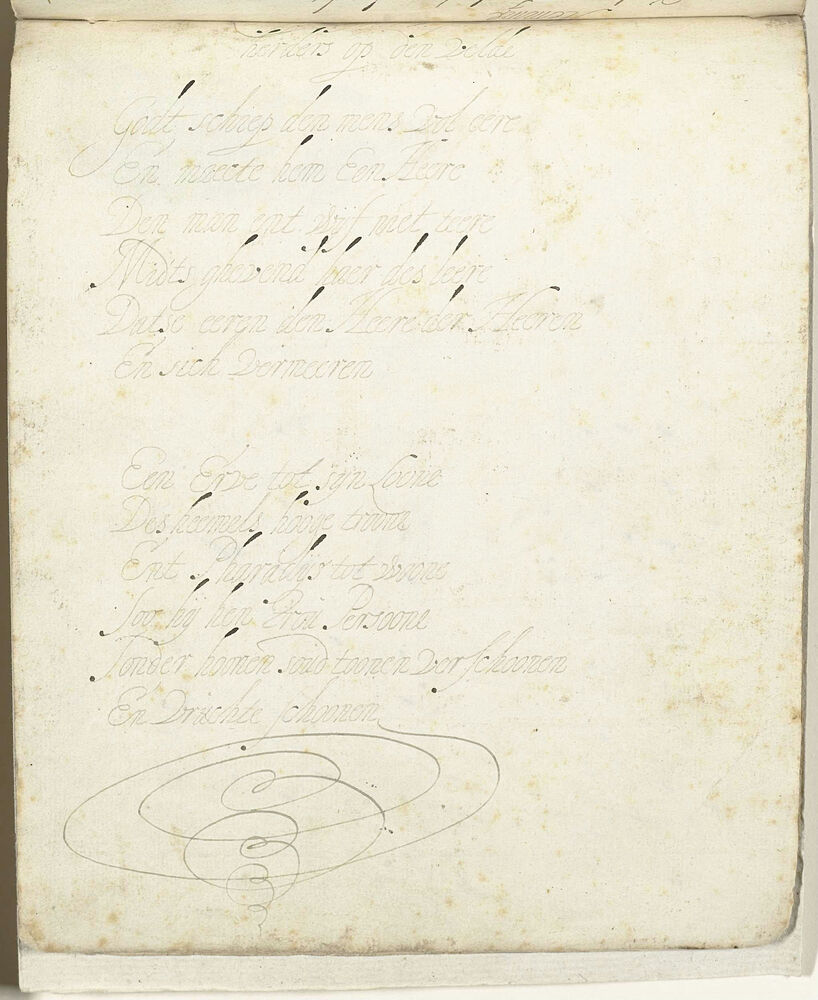 herders op den velde
Godt schiep den mens vol eere
En maecte hem Een Heere
Den man ent wijf met teere
Midts ghevend haer des leere
Datse eeren den Heere der Heeren
En sich vermeeren
Een Erve tot sijn Soone
Des heemels hooge troone
Ent Pharadijs tot woone
Soo hij hen Persoone
Sonder hoonen toonen verschoonen
En Vruchte schoonen